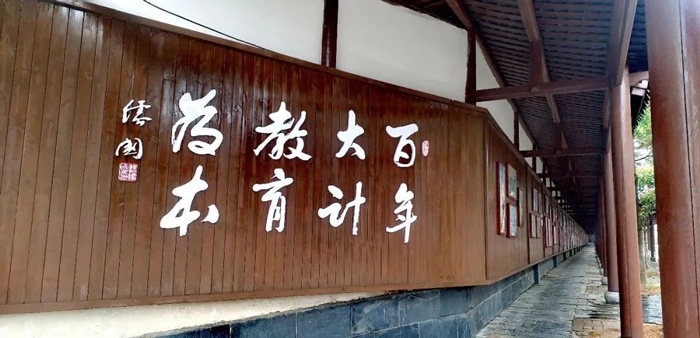 百年
大计
教育
为本
儒国